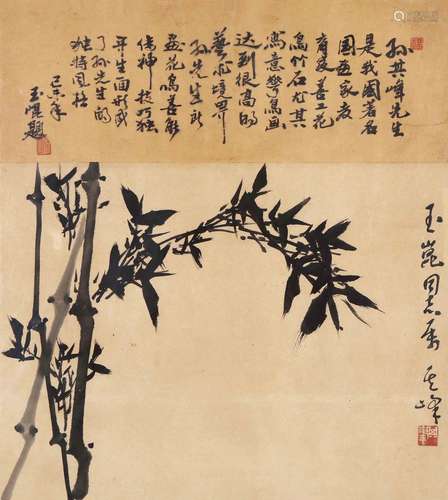 孙其峰先生
是我国著名
国画家教
育家善工花
鸟竹石尤其
写意花鸟画
达到很高的
艺术境界
孙先生所
画花鸟善能
传神技巧独
平生面形成
了孙先生的
独特风格
己未年
玉崑题
玉崑同志属
其峰